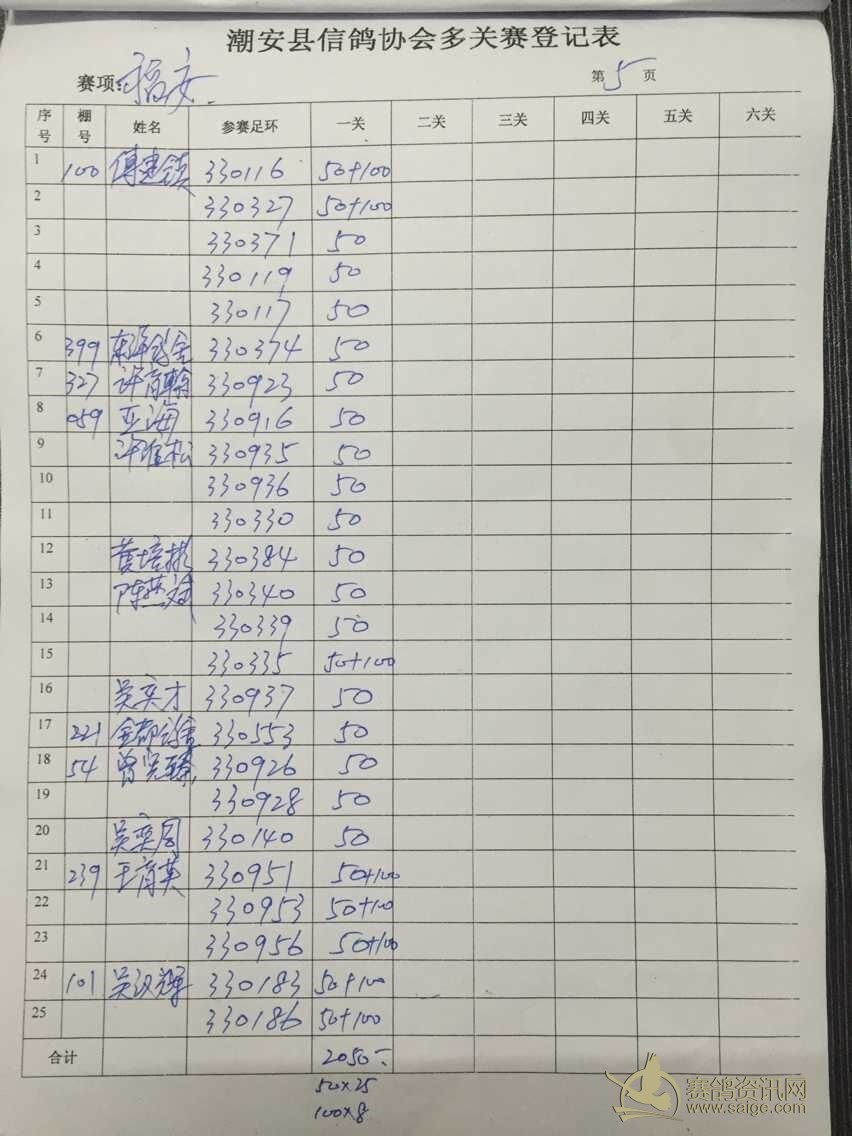 潮安县信鸽协会多关赛登记表
赛项:福安 第5页
序号 棚号 姓名 参赛足环 一关 二关 三关 四关 五关 六关
1 100 傅建镇 330116 50+100
2 330327 50+100
3 330371 50
4 330119 50
5 330117 50
6 399 330374 50
7 327 许育翰 330923 50
8 059 亚海 330916 50
9 许维松 330935 50
10 330936 50
11 330330 50
12 黄培彬 330384 50
13 陈燕斌 330340 50
14 330339 50
15 330335 50+100
16 吴奕才 330937 50
17 221 金都鸽舍 330553 50
18 54 曾宪臻 330926 50
19 330928 50
20 吴奕周 330140 50
21 239 王育英 330951 50+100
22 330953 50+100
23 330956 50+100
24 101 吴汉辉 330183 50+100
25 330186 50+100
合计 2050
50×25
100×8
赛鸽资讯网
www.saige.com